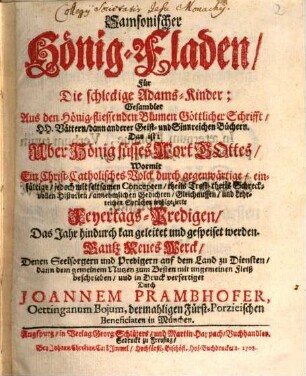 Collegij Societatis Jesu Monachij
Samsonischer
Hönig-Fladen/
Für
Die schleckige Adams-Kinder:
Gesamblet
Aus den Hönig-fliessenden Blumen Göttlicher Schrifft/
HH. Vättern/ dann anderer Geist- und Sinnreichen Büchern.
Das ist:
Uber Hönig süsses Wort GOttes/
Wormit
Ein Christ-Catholisches Volck durch gegenwärtige/ ein-
fältige/ jedoch mit seltsamen Concepten/ theils Trost- theils Schreck-
vollen Historien/ annehmlichen Gedichten/ Gleichnussen/ und Lehr-
reichen Sprüchen
Feyertags-Predigen/
Das Jahr hindurch kan geleitet und gespeiset werden.
Gantz Neues Werck/
Denen Seelsorgern und Predigern auf dem Land zu Diensten/
dann dem gemeinem Nutzen zum Besten mit ungemeinen Fleiß
beschrieben/ und in Druck verfertiget
Durch
JOANNEM PRAMBHOFER,
Oettinganum Bojum, dermahligen Fürst-Porzieischen
Beneficiaten in München.
Augspurg/ in Verlag Georg Schlüters/ und Martin Happach/ Buchhandler.
Gedruckt zu Freysing/
Bey Johann Christian Carl Immel/ Hochfürstl. Bischöfl. Hof-Buchdrucker.